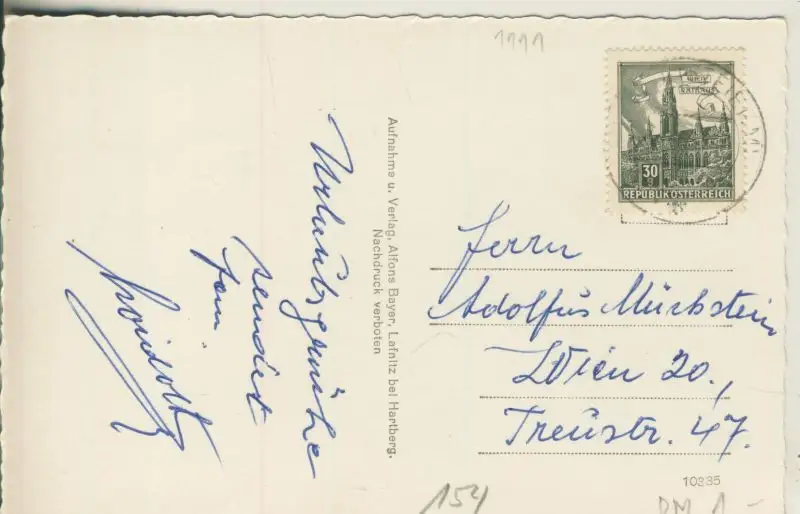 1991
WIEN
RATHAUS
30 g
REPUBLIK ÖSTERREICH
Urlaubsgrüße
sendet
Fam.
Aufnahme u. Verlag, Alfons Bayer, Lafnitz bei Hartberg.
Nachdruck verboten
Herrn
Adolfus Mückstein
Wien 20.,
Treustr. 47.
10335
154
DM 1-